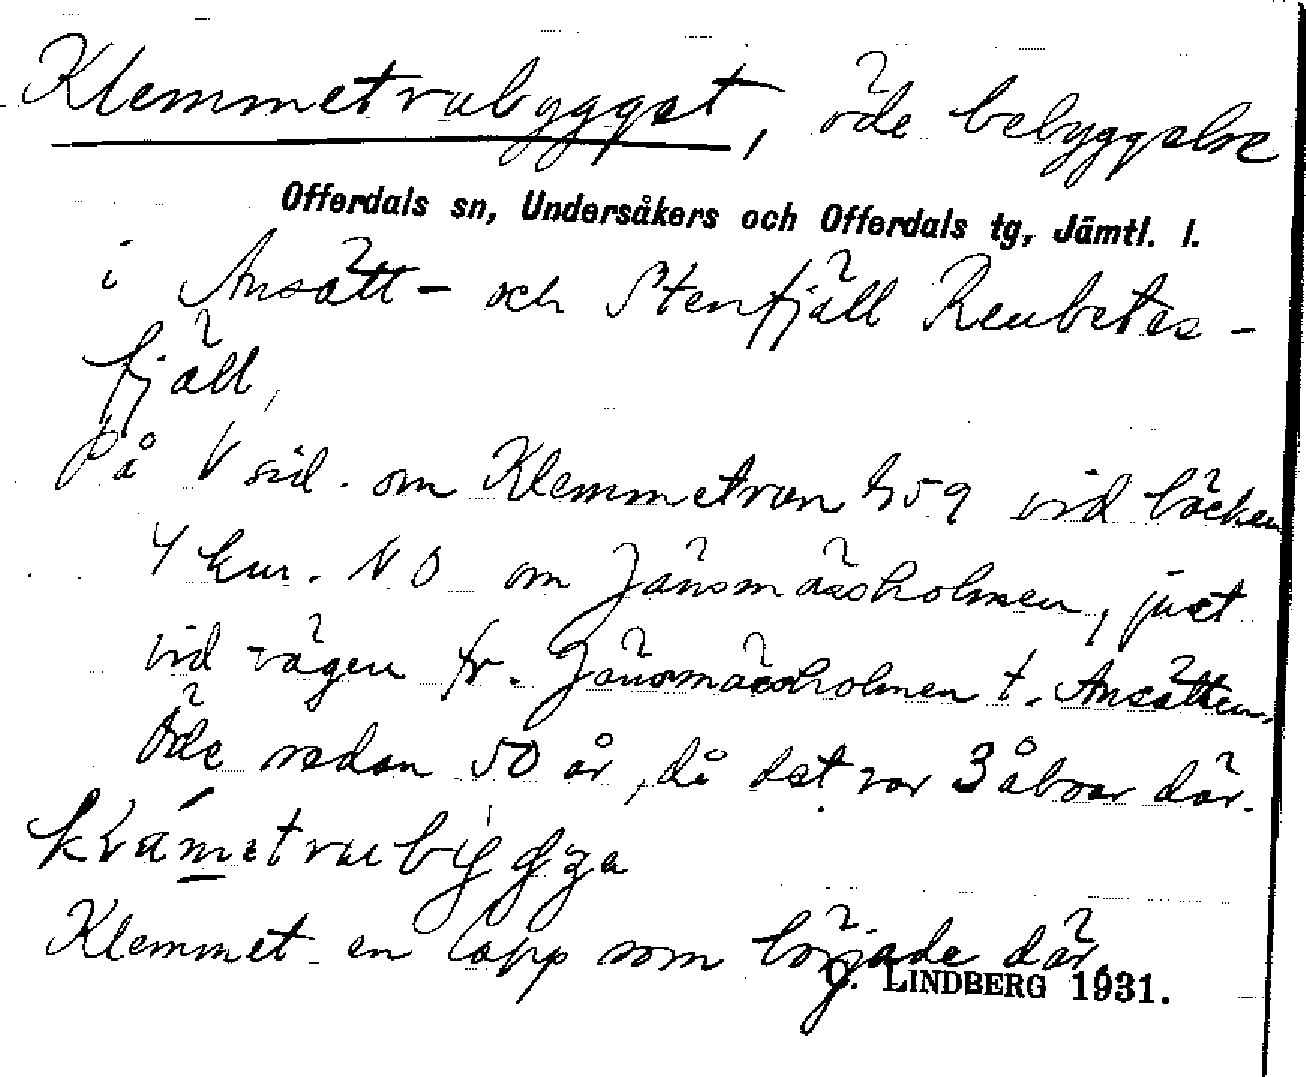 Klemmetrubygget, öde bebyggelse
Offerdals sn, Undersåkers och Offerdals tg, Jämtl. l.
i Ansätt- och Stenfjäll Renbetes-
fjäll,
På V sid. om Klemmetrun 859 vid bäcken
4 km. NO om Jänsmässholmen, just
vid vägen fr. Jänsmässholmen t. Ansätten.
Öde sedan 50 år, då det var 3 åboar där.
Klemmet en lapp som började där.
G. LINDBERG 1931.